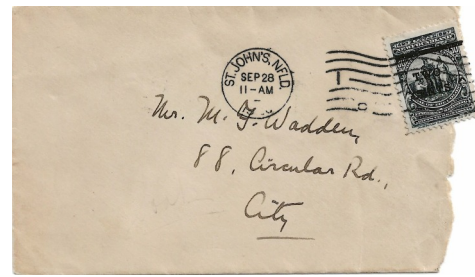 ST. JOHN'S, NFLD.
SEP 28
11-AM
Mr. M. J. Wadden,
88, Circular Rd.,
City